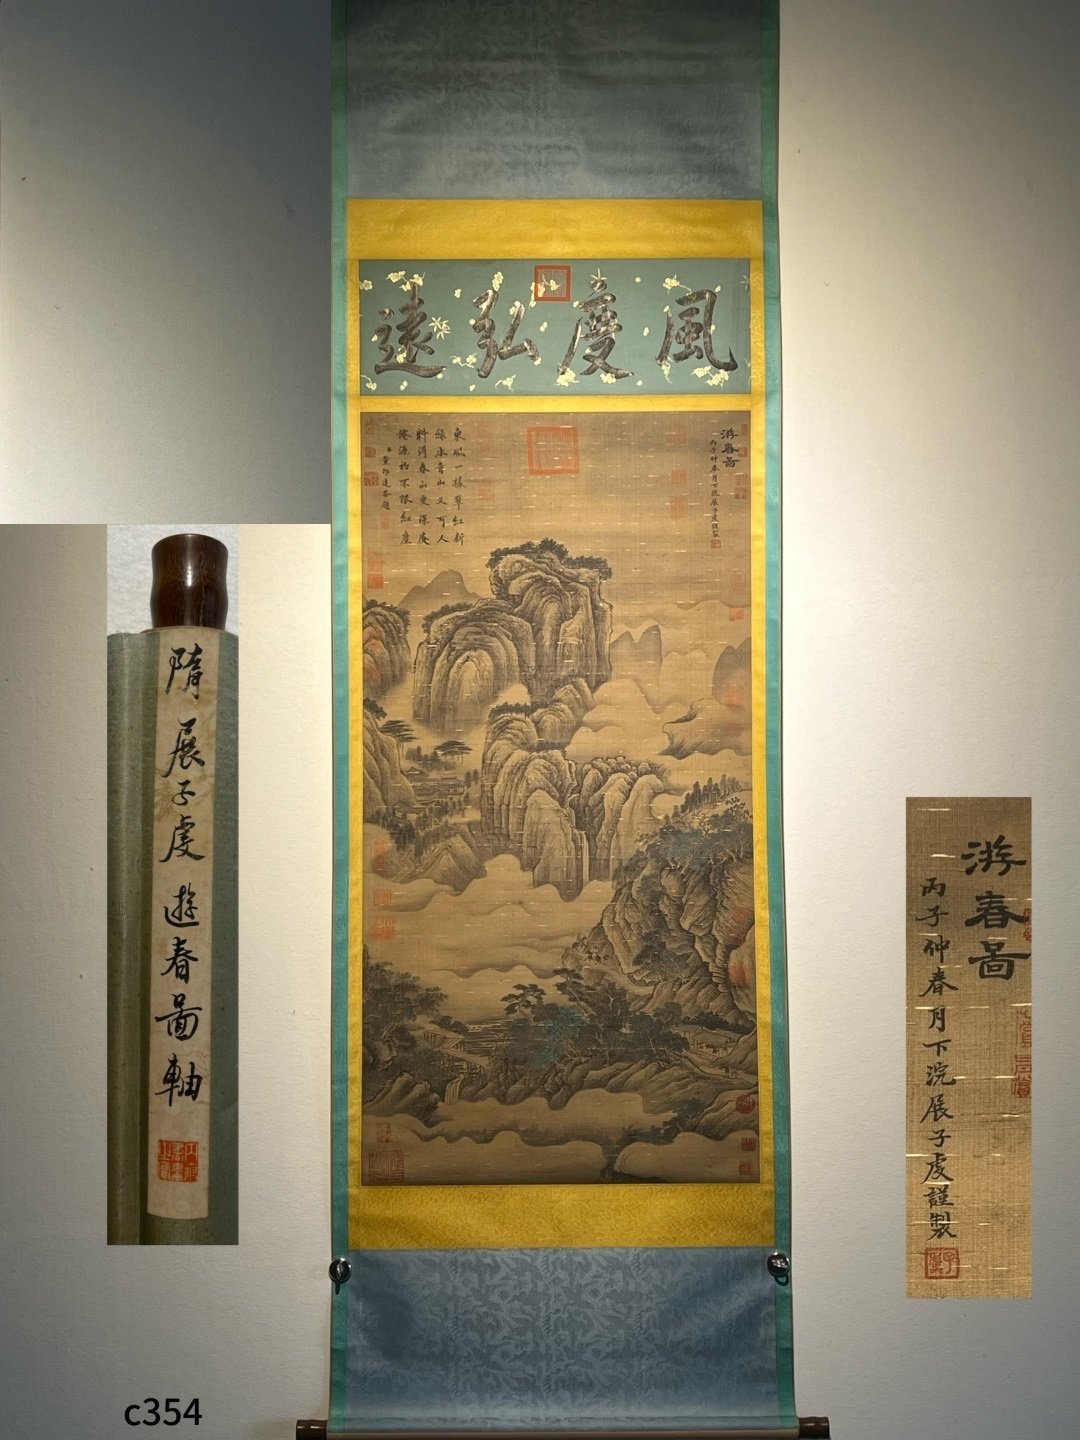 風度弘遠
游春圖
丙子仲春月下浣展子虔謹製
東風一樣翠紅新
綠水青山又可人
料得春山更深處
僊源初不限紅塵
董邦達恭題
隋展子虔遊春圖軸
游春圖
丙子仲春月下浣展子虔謹製
c354